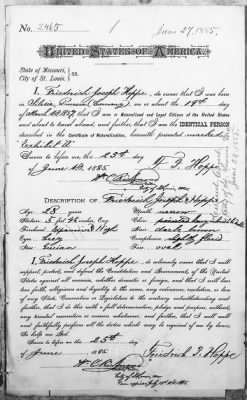 No. 2465
1
June 27, 1885.
UNITED STATES OF AMERICA.
State of Missouri,
City of St. Louis. } ss.
I, Friedrich Joseph Hoppe, do swear that I was born
in Germany, on or about the 19th day
of March AD 1857, that I am a Naturalized and Loyal Citizen of the United States
and about to travel abroad, and further, that I am the IDENTICAL PERSON
described in the Certificate of Naturalization, herewith presented marked
"Exhibit A"
Sworn to before me, this 25th day
of June AD 1885
F. J. Hoppe
DESCRIPTION OF Friedrich Joseph Hoppe
Age 28 years
Mouth
Stature 5 feet inches, Eng.
Chin
Forehead High
Hair Dark brown
Eyes Grey
Complexion
Nose
Face oval
I, Friedrich Joseph Hoppe, do solemnly swear that I will
support, protect, and defend the Constitution and Government, of the United
States against all enemies, whether domestic or foreign, and that I will bear
true faith, allegiance and loyalty to the same, any ordinance, resolution, or law
of any State, Convention or Legislature to the contrary notwithstanding; and
further, that I do this with a full determination, pledge and purpose, without
any mental reservation or evasion whatsoever, and further, that I will well
and faithfully perform all the duties which may be required of me by law.
So help me God.
Sworn to before me, this 25th day
of June 1885
Friedrich J. Hoppe